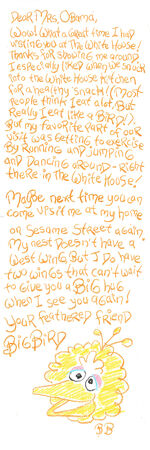 Dear Mrs. Obama,
Wow! What a great time I had
visiting you at The White House!
Thanks for showing me around.
I especially liked when we snuck
into the White House Kitchen
for a healthy snack! (Most
people think I eat a lot. But
Really I eat like a BIRD!).
But my favorite part of our
visit was getting to exercise
By Running and Jumping
and Dancing around - Right
there in the White House!
Maybe next time you can
come visit me at my home
on Sesame Street again.
My nest doesn't have a
West Wing, But I do have
two wings that can't wait
to give you a Big hug
when I see you again!
Your feathered friend
Big Bird
BB